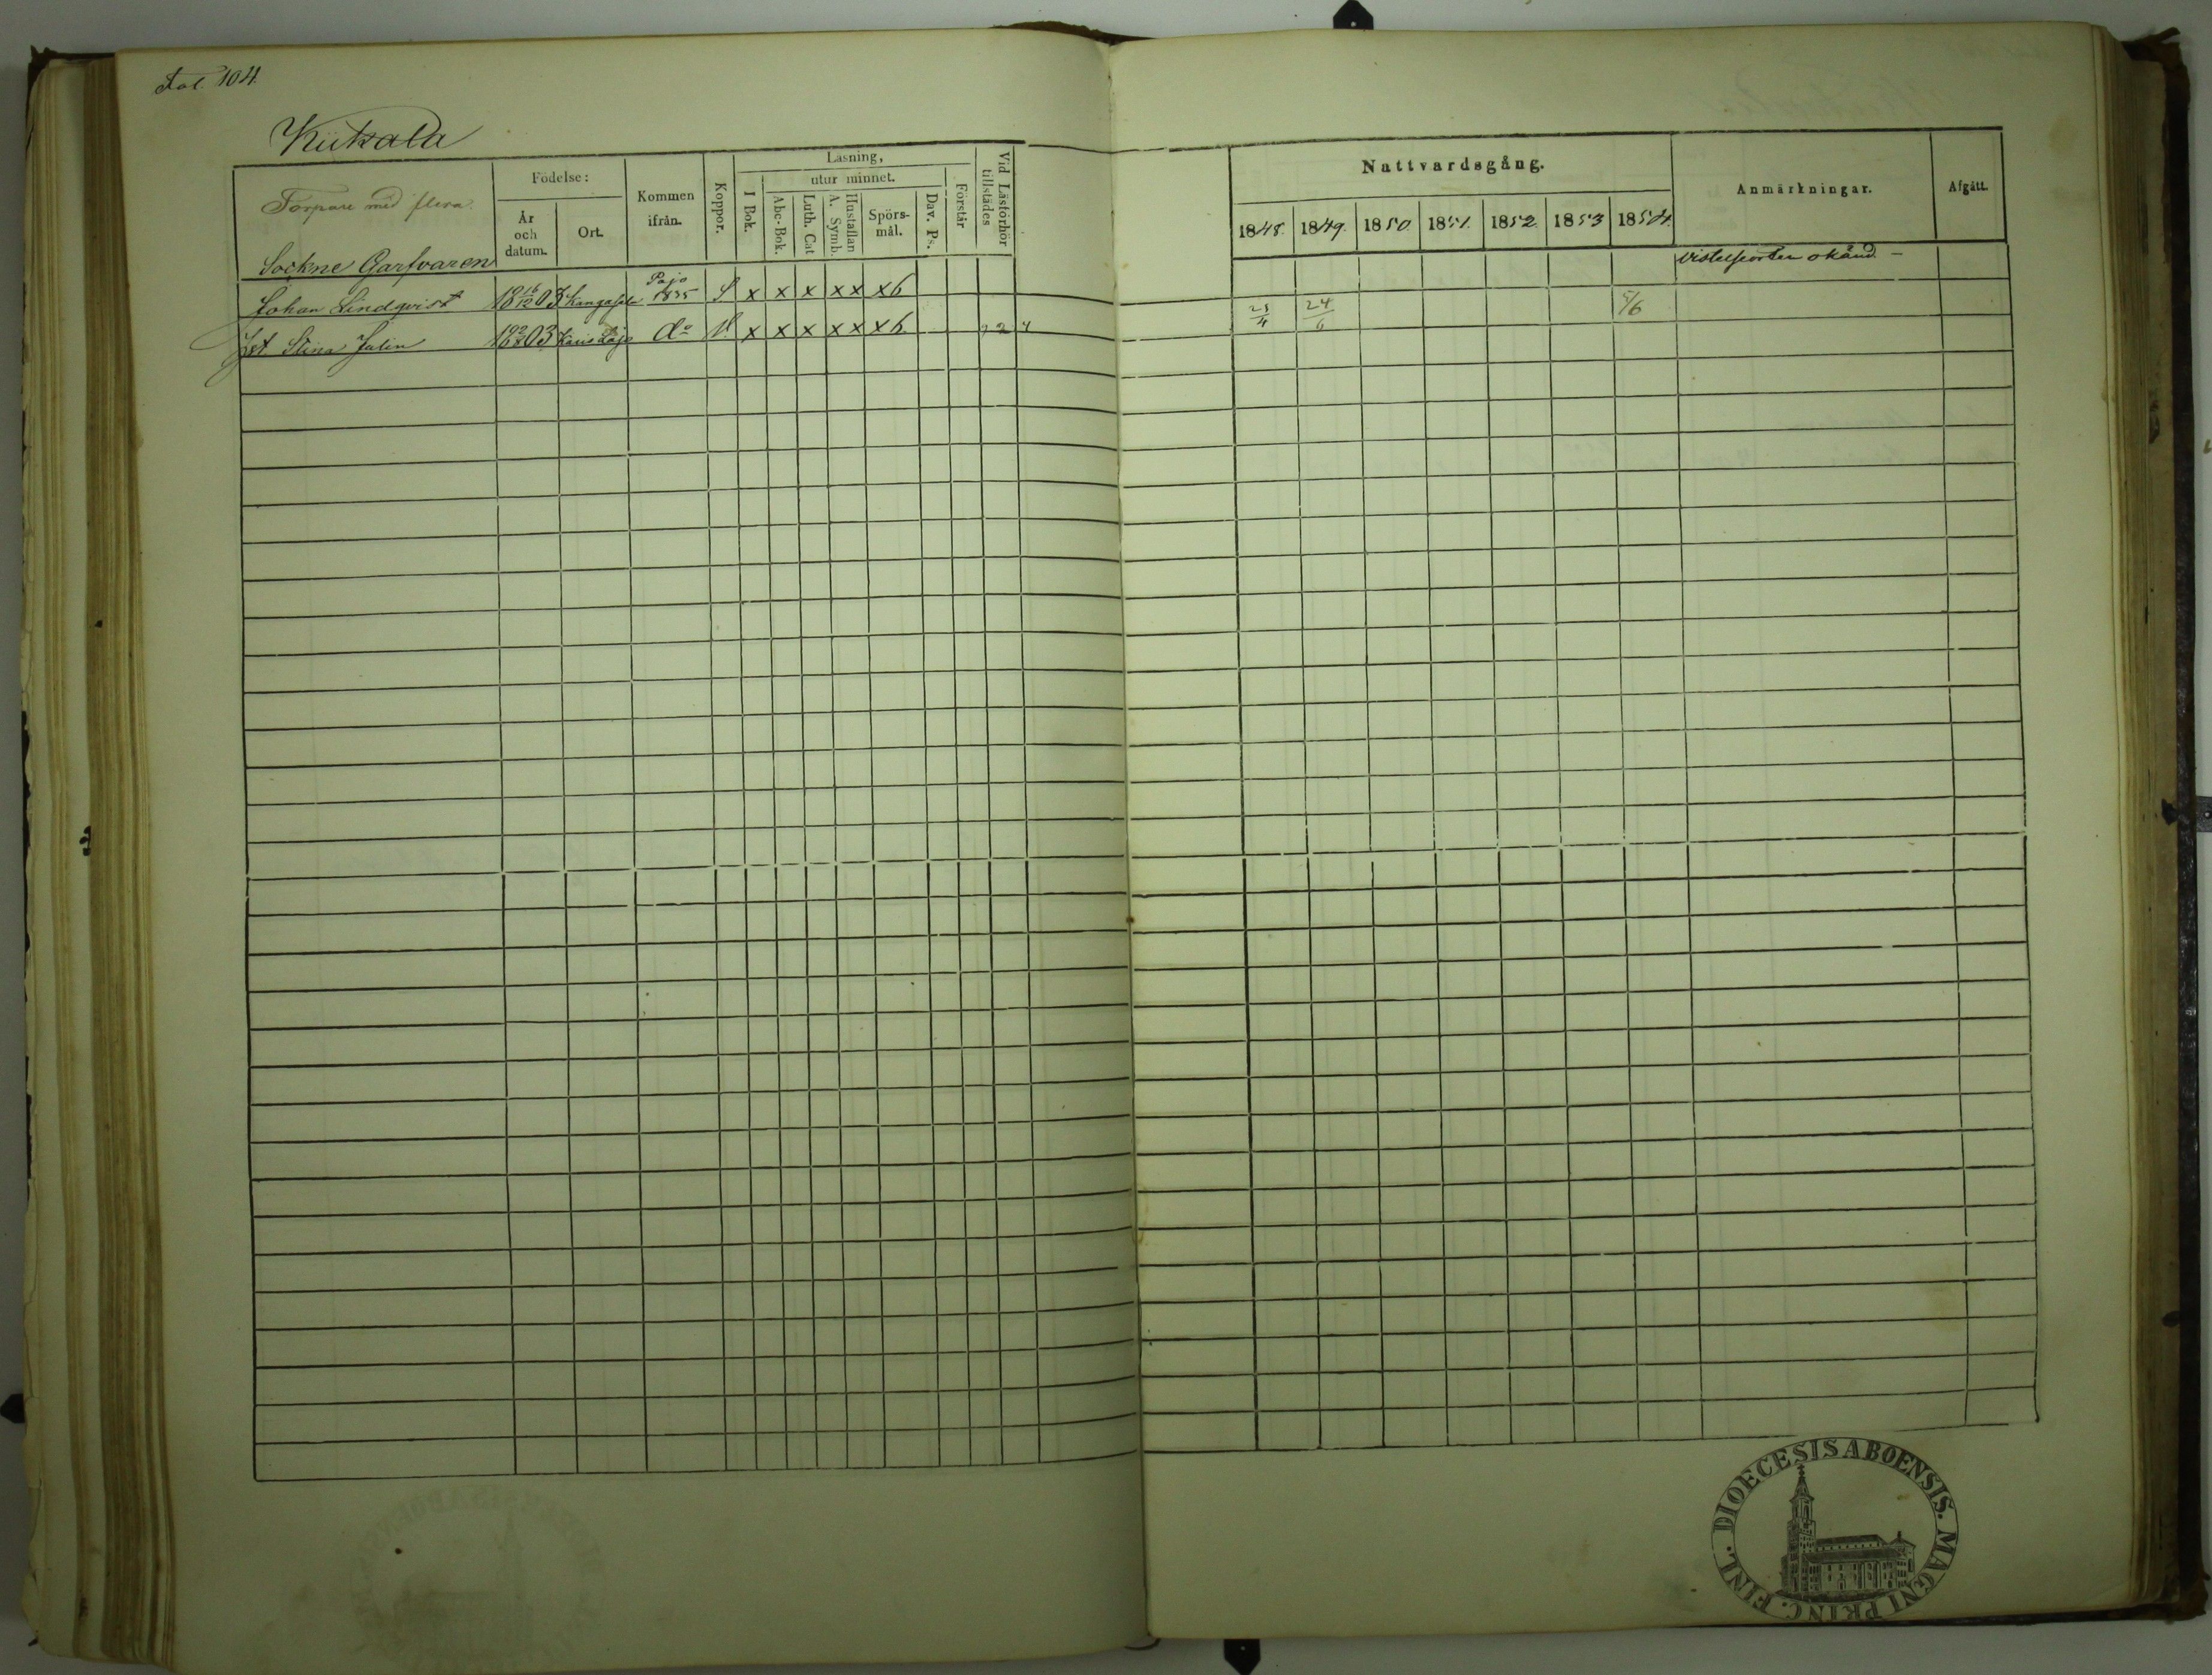 Fol. 104.
Kiikala
Torpare med flera.
Födelse:
År och datum.
Ort.
Kommen ifrån.
Koppor.
Läsning,
I Bok.
utur minnet.
Abc-Bok.
Luth. Cat
Hustaflan A. Symb.
Spörs-mål.
Dav. Ps.
Förstår
Vid Läsförhör tillstädes
Nattvardsgång.
1848. 1849. 1850. 1851. 1852. 1853 1854.
Anmärkningar.
Afgått.
Sockne Garfvaren
Johan Lindqvist 18 16/12 03 Kangasala Pojo 1835 S x x x x x x 6
vistelseorten okänd. –
Hst. Stina Julin 18 03 Karis Lojo do V. x x x x x x 6
24/6 5/6
DIOECESIS ABOENSIS. MAGNI PRINC. FINL.